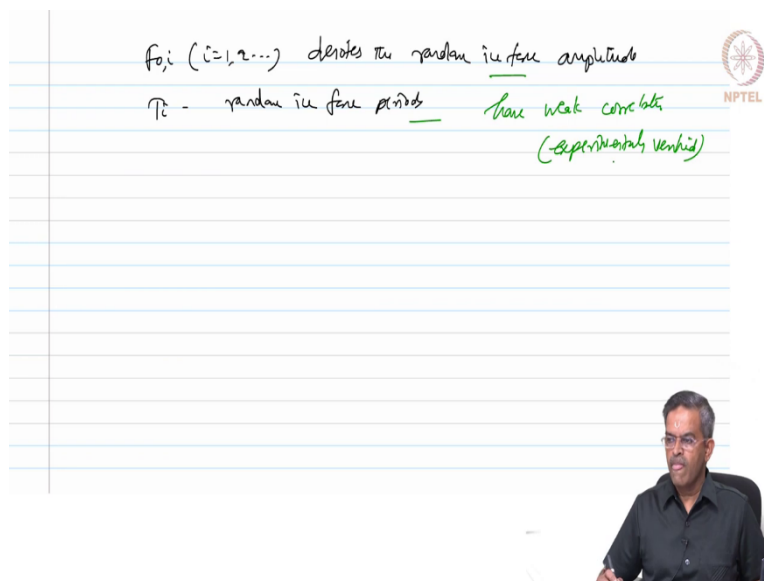 F0,i (i=1,2...) denotes the random ice force amplitude
Ti - random ice force periods have weak correlation
(experimentally verified)
NPTEL